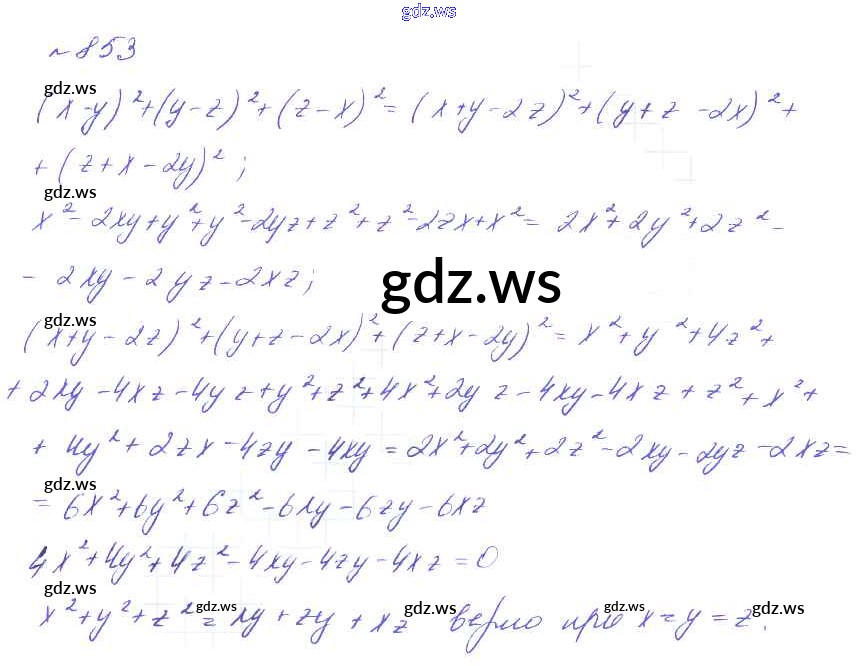 gdz.ws
№ 853
gdz.ws
(x-y)²+(y-z)²+(z-x)²=(x+y-2z)²+(y+z-2x)²+
+(z+x-2y)²;
gdz.ws
x²-2xy+y²+y²-2yz+z²+z²-2zx+x²= 2x²+2y²+2z²-
- 2xy-2yz-2xz;
gdz.ws
gdz.ws
(x+y-2z)²+(y+z-2x)²+(z+x-2y)²= x²+y²+4z²+
+2xy-4xz-4yz+y²+z²+4x²+2yz-4xy-4xz+z²+x²+
gdz.ws
+4y²+2zx-4zy-4xy=2x²+2y²+2z²-2xy-2yz-2xz=
gdz.ws
=6x²+6y²+6z²-6xy-6zy-6xz
4x²+4y²+4z²-4xy-4zy-4xz=0
gdz.ws
x²+y²+z²=xy+zy+xz верно при x=y=z.
gdz.ws gdz.ws gdz.ws gdz.ws gdz.ws